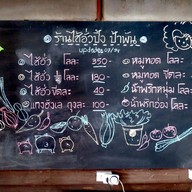 ร้านไส้อั่วปิ้ง ป้าพิน
update
ไส้อั่ว โลละ 350.-
ไส้อั่ว ½ โลละ 180.-
ไส้อั่วขีดละ 40.-
แกงฮังเล ถุงละ 100.-
หมูทอด โลละ
หมูทอด ขีดละ
น้ำพริกหนุ่ม โลละ
น้ำพริกอ่อง โลละ